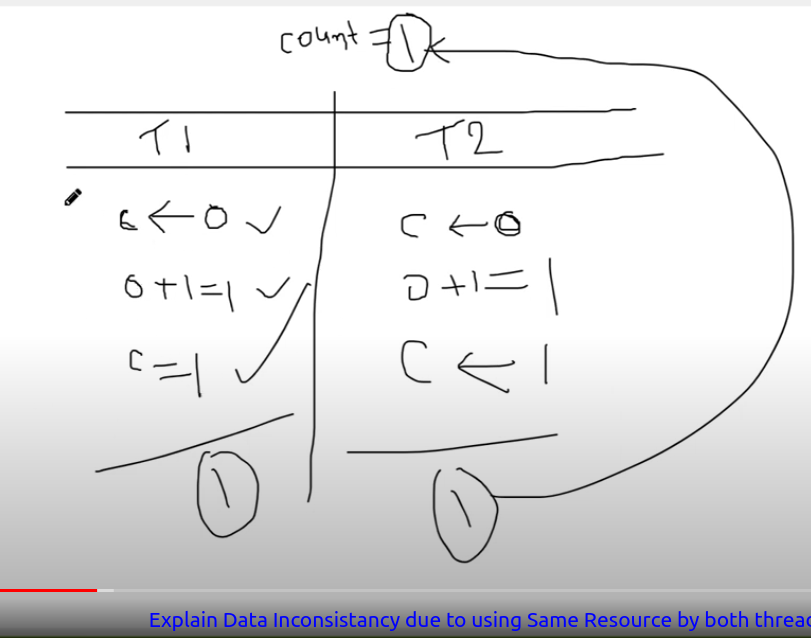 count = 1
T1 T2
c ← 0 ✓ c ← 0
0+1=1 ✓ 0+1=1
c=1 ✓ C ← 1
1 1
Explain Data Inconsistancy due to using Same Resource by both threa